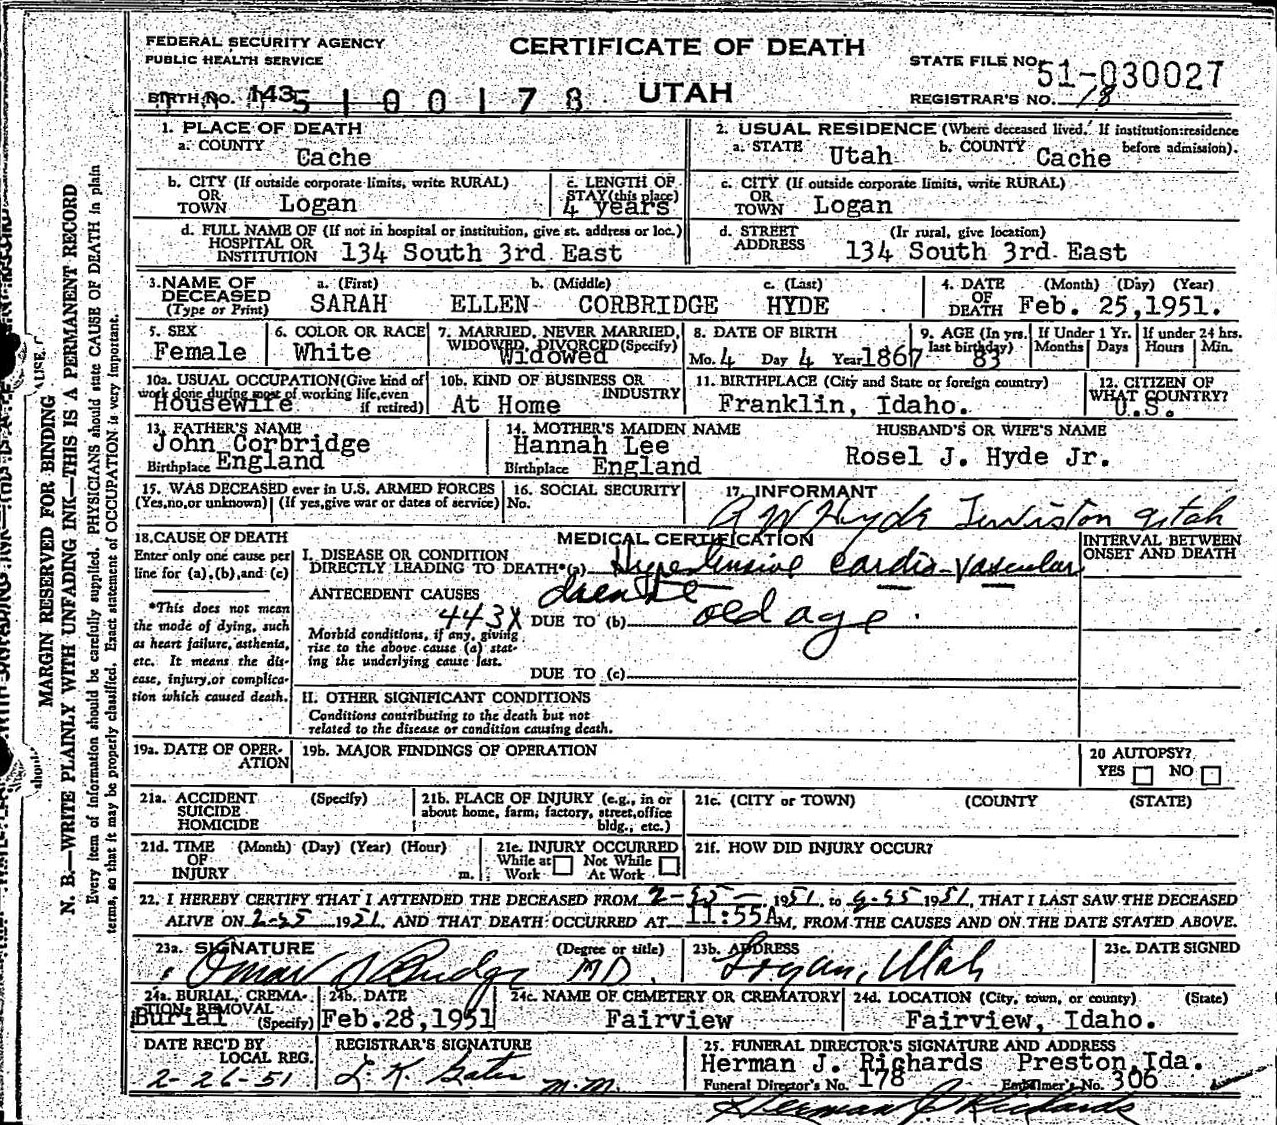 FEDERAL SECURITY AGENCY
PUBLIC HEALTH SERVICE
CERTIFICATE OF DEATH
UTAH
STATE FILE NO. 51-030027
REGISTRAR'S NO. 18
BIRTH NO. 143 5100178
1. PLACE OF DEATH
a. COUNTY Cache
2. USUAL RESIDENCE (Where deceased lived. If institution:residence before admission).
a. STATE Utah b. COUNTY Cache
b. CITY (If outside corporate limits, write RURAL)
OR TOWN Logan
c. LENGTH OF STAY (this place) 4 years
c. CITY (If outside corporate limits, write RURAL)
OR TOWN Logan
d. FULL NAME OF (If not in hospital or institution, give st. address or loc.)
HOSPITAL OR INSTITUTION 134 South 3rd East
d. STREET ADDRESS (Ir rural, give location)
134 South 3rd East
3. NAME OF DECEASED (Type or Print)
a. (First) b. (Middle) c. (Last)
SARAH ELLEN CORBRIDGE HYDE
4. DATE OF DEATH (Month) (Day) (Year)
Feb. 25,1951.
5. SEX
Female
6. COLOR OR RACE
White
7. MARRIED, NEVER MARRIED, WIDOWED, DIVORCED(Specify)
Widowed
8. DATE OF BIRTH
Mo. 4 Day 4 Year 1867
9. AGE (In yrs. last birthday)
83
If Under 1 Yr.
Months Days
If under 24 hrs.
Hours Min.
10a. USUAL OCCUPATION(Give kind of work done during most of working life,even if retired)
Housewife
10b. KIND OF BUSINESS OR INDUSTRY
At Home
11. BIRTHPLACE (City and State or foreign country)
Franklin, Idaho.
12. CITIZEN OF WHAT COUNTRY?
U.S.
13. FATHER'S NAME
John Corbridge
Birthplace England
14. MOTHER'S MAIDEN NAME
Hannah Lee
Birthplace England
HUSBAND'S OR WIFE'S NAME
Rosel J. Hyde Jr.
15. WAS DECEASED ever in U.S. ARMED FORCES
(Yes,no,or unknown) (If yes,give war or dates of service)
16. SOCIAL SECURITY No.
17. INFORMANT
A W Hyde Lewiston Utah
18. CAUSE OF DEATH
Enter only one cause per line for (a),(b),and (c)
*This does not mean the mode of dying, such as heart failure, asthenia, etc. It means the disease, injury,or complication which caused death.
MEDICAL CERTIFICATION
INTERVAL BETWEEN ONSET AND DEATH
I. DISEASE OR CONDITION
DIRECTLY LEADING TO DEATH*(a) Hypertensive cardio-vascular
ANTECEDENT CAUSES
443X
DUE TO (b) old age.
Morbid conditions, if any, giving rise to the above cause (a) stating the underlying cause last.
DUE TO (c)
II. OTHER SIGNIFICANT CONDITIONS
Conditions contributing to the death but not related to the disease or condition causing death.
19a. DATE OF OPERATION
19b. MAJOR FINDINGS OF OPERATION
20 AUTOPSY?
YES NO
21a. ACCIDENT (Specify)
SUICIDE
HOMICIDE
21b. PLACE OF INJURY (e.g., in or about home, farm, factory, street,office bldg., etc.)
21c. (CITY or TOWN) (COUNTY) (STATE)
21d. TIME OF INJURY (Month) (Day) (Year) (Hour) m.
21e. INJURY OCCURRED
While at Work Not While At Work
21f. HOW DID INJURY OCCUR?
22. I HEREBY CERTIFY THAT I ATTENDED THE DECEASED FROM 1951, to 1951, THAT I LAST SAW THE DECEASED
ALIVE ON 2-25 1951, AND THAT DEATH OCCURRED AT 11:55AM, FROM THE CAUSES AND ON THE DATE STATED ABOVE.
23a. SIGNATURE (Degree or title)
Omar S Budge MD.
23b. ADDRESS
Logan, Utah
23c. DATE SIGNED
24a. BURIAL, CREMATION, REMOVAL (Specify)
Burial
24b. DATE
Feb.28,1951
24c. NAME OF CEMETERY OR CREMATORY
Fairview
24d. LOCATION (City, town, or county) (State)
Fairview, Idaho.
DATE REC'D BY LOCAL REG.
2-26-51
REGISTRAR'S SIGNATURE
m.m.
25. FUNERAL DIRECTOR'S SIGNATURE AND ADDRESS
Herman J. Richards Preston,Ida.
Funeral Director's No. 178 Embalmer's No. 306
Herman J Richards
MARGIN RESERVED FOR BINDING
N. B.—WRITE PLAINLY WITH UNFADING INK—THIS IS A PERMANENT RECORD
Every item of information should be carefully supplied. PHYSICIANS should state CAUSE OF DEATH in plain
terms, so that it may be properly classified. Exact statement of OCCUPATION is very important.